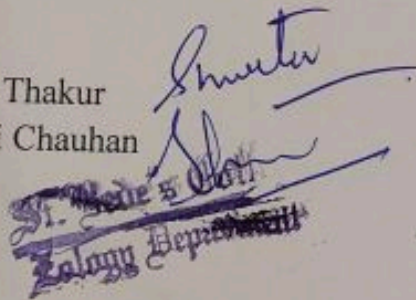 Thakur
Chauhan
St. Bede's Coll
Zoology Department